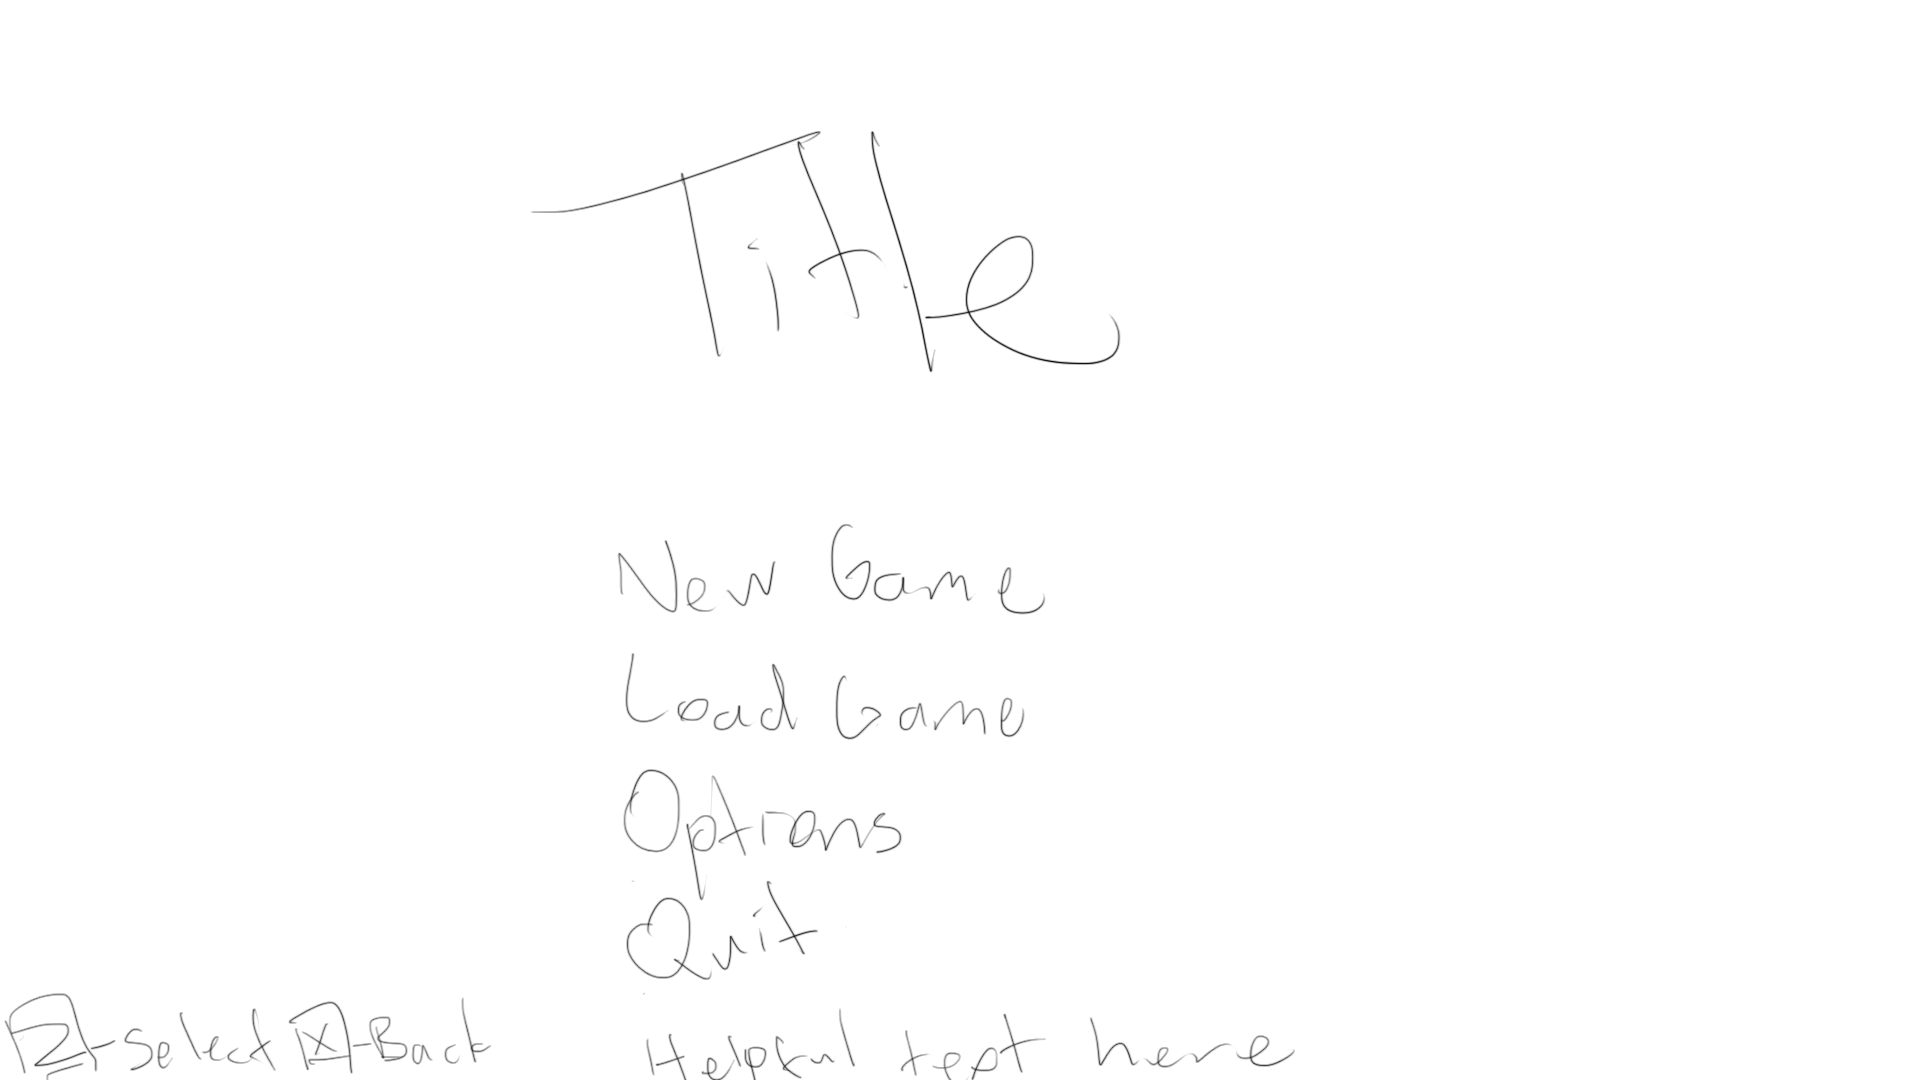 Title
New Game
Load Game
Options
Quit
Z-Select X-Back
Helpful text here